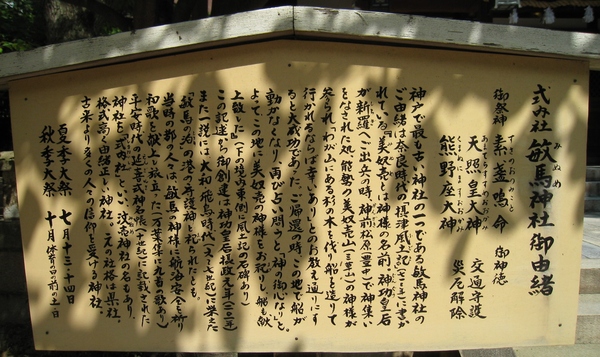 式内社 敏馬神社 御由緒
みぬめ
御祭神 素盞嗚命 御神徳
すさのおのみこと
天照皇大神 交通守護
あまてらすすめおおかみ
熊野座大神 災厄解除
くまぬにますおおかみ
神戸で最も古い神社の一つである敏馬神社の
ご由緒は奈良時代の摂津風土記(七一三)に書か
れている。『美奴売とは神様の名前。神功皇后
が新羅へご出兵の時、神前松原(豊中)で神集い
をなされた処、能勢の美奴売山(三草山)の神様が
来られ『わが山にある杉の木を伐り船を造りて
行かれるならば幸いあり』とのお教え通りにす
ると大成功であった。ご帰還の時、この地で船が
動かなくなり、再び占い問うと『神の御心なり』と。
よってこの地に美奴売の神様をお祀りし、船も献
上致した』(下の境内東側に風土記の文碑あり)
この記述から御創建は神功皇后摂政元年(二〇一年)
また一説には大和・飛鳥時代(五~七世紀)に栄えた
『敏馬の泊』の港の守護神と祀られたとも。
当時の都の人々は、敏馬の神様に航海安全を祈り
和歌を献上し旅立った(万葉集に九首の歌あり)
平安時代の延喜式神名帳(十世紀)に記載された
神社を『式内社』といい、汶売神社の名もあり
格式高く由緒正しい神社。元の社格は県社。
古来より多くの人々の信仰を受ける神社。
夏季大祭 七月十三・十四日
秋季大祭 十月 体育の日の前の土日